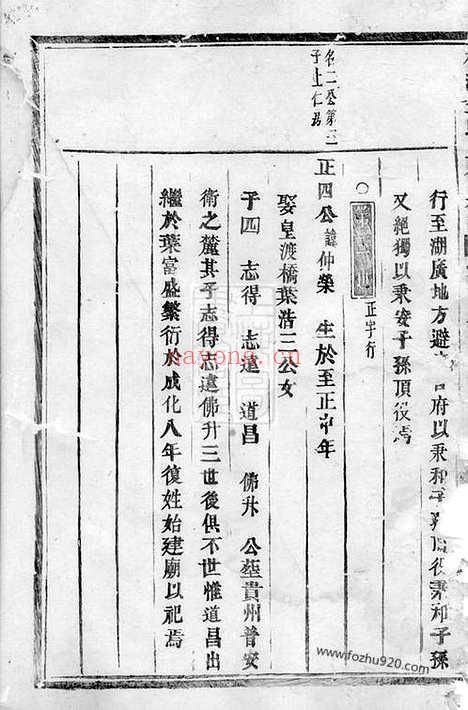 行至湖廣地方避 府以秉和子 役秉和子孫
又絕獨以秉安子孫頂役焉
正字行
名二公第三
子上仁
正四公諱仲榮 生於至正 年
娶皇渡橋葉浩三公女
子四 志得 志遠 道昌 佛升 公塟貴州普安
衛之麓其子志得志遠佛升三世後俱不世惟道昌出
繼於葉富盛繁衍於成化八年復姓始建廟以祀焉
nayong.cn
www.fozhu920.com